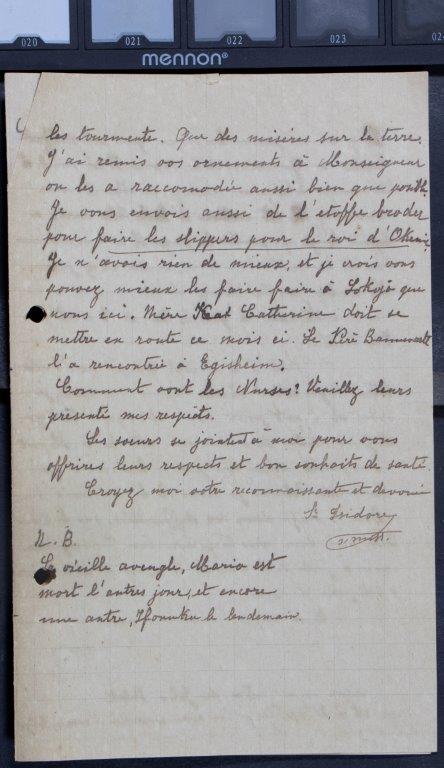 020 021 022 023 024
mennon®
les tourmente. Que des misères sur la terre.
J'ai remis vos ornements à Monseigneur
on les a raccomodée aussi bien que possible
Je vous envois aussi de l'etoffe broder
pour faire les slippers pour le roi d'Okeni
Je n'avois rien de mieux, et je crois vous
pouvez mieux les faire faire à Lokoja que
nous ici. Mère Catherine doit se
mettre en route ce mois ci. Le Père
l'a rencontrée à Egisheim.
Comment vont les Nurses? Veuillez leurs
presenté mes respêts.
Les soeurs se jointent à moi pour vous
offrires leurs respects et bon souhaits de santé.
Croyez moi votre reconnaissante et devouée
Sr Isidore
N. B.
La vieille aveugle, Maria est
mort l'autres jour, et encore
une autre, le lendemain.